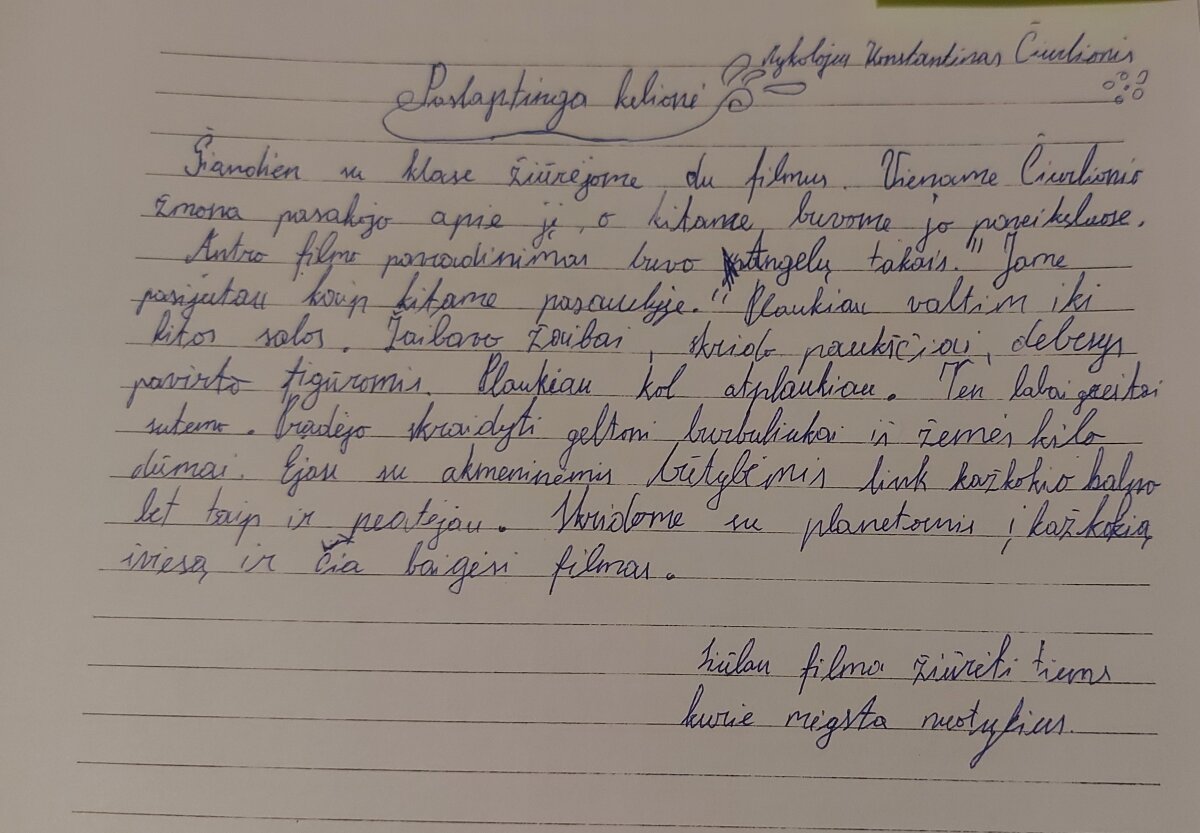 Mykolojus Konstantinas Čiurlionis
Paslaptinga kelionė
Šiandien su klase žiūrėjome du filmus. Viename Čiurlionio
žmona pasakojo apie jį, o kitame buvome jo paveiksluose.
Antro filmo pavadinimas buvo Angelų takais." Jame
pasijutau kaip kitame pasaulyje." Plaukiau valtim iki
kitos salos. Žaibavo žaibai, skrido paukščiai, debesys
pavirto figūromis. Plaukiau kol atplaukiau. Ten labai greitai
sutemo. Pradėjo skraidyti geltoni burbuliukai iš žemės kilo
dūmai. Ėjau su akmeninėmis būtybėmis link kažkokio kalno
bet taip ir neatėjau. Skridome su planetomis į kažkokią
šviesą ir čia baigėsi filmas.
Siūlau filma žiūrėti tiems
kurie mėgsta nuotykius.